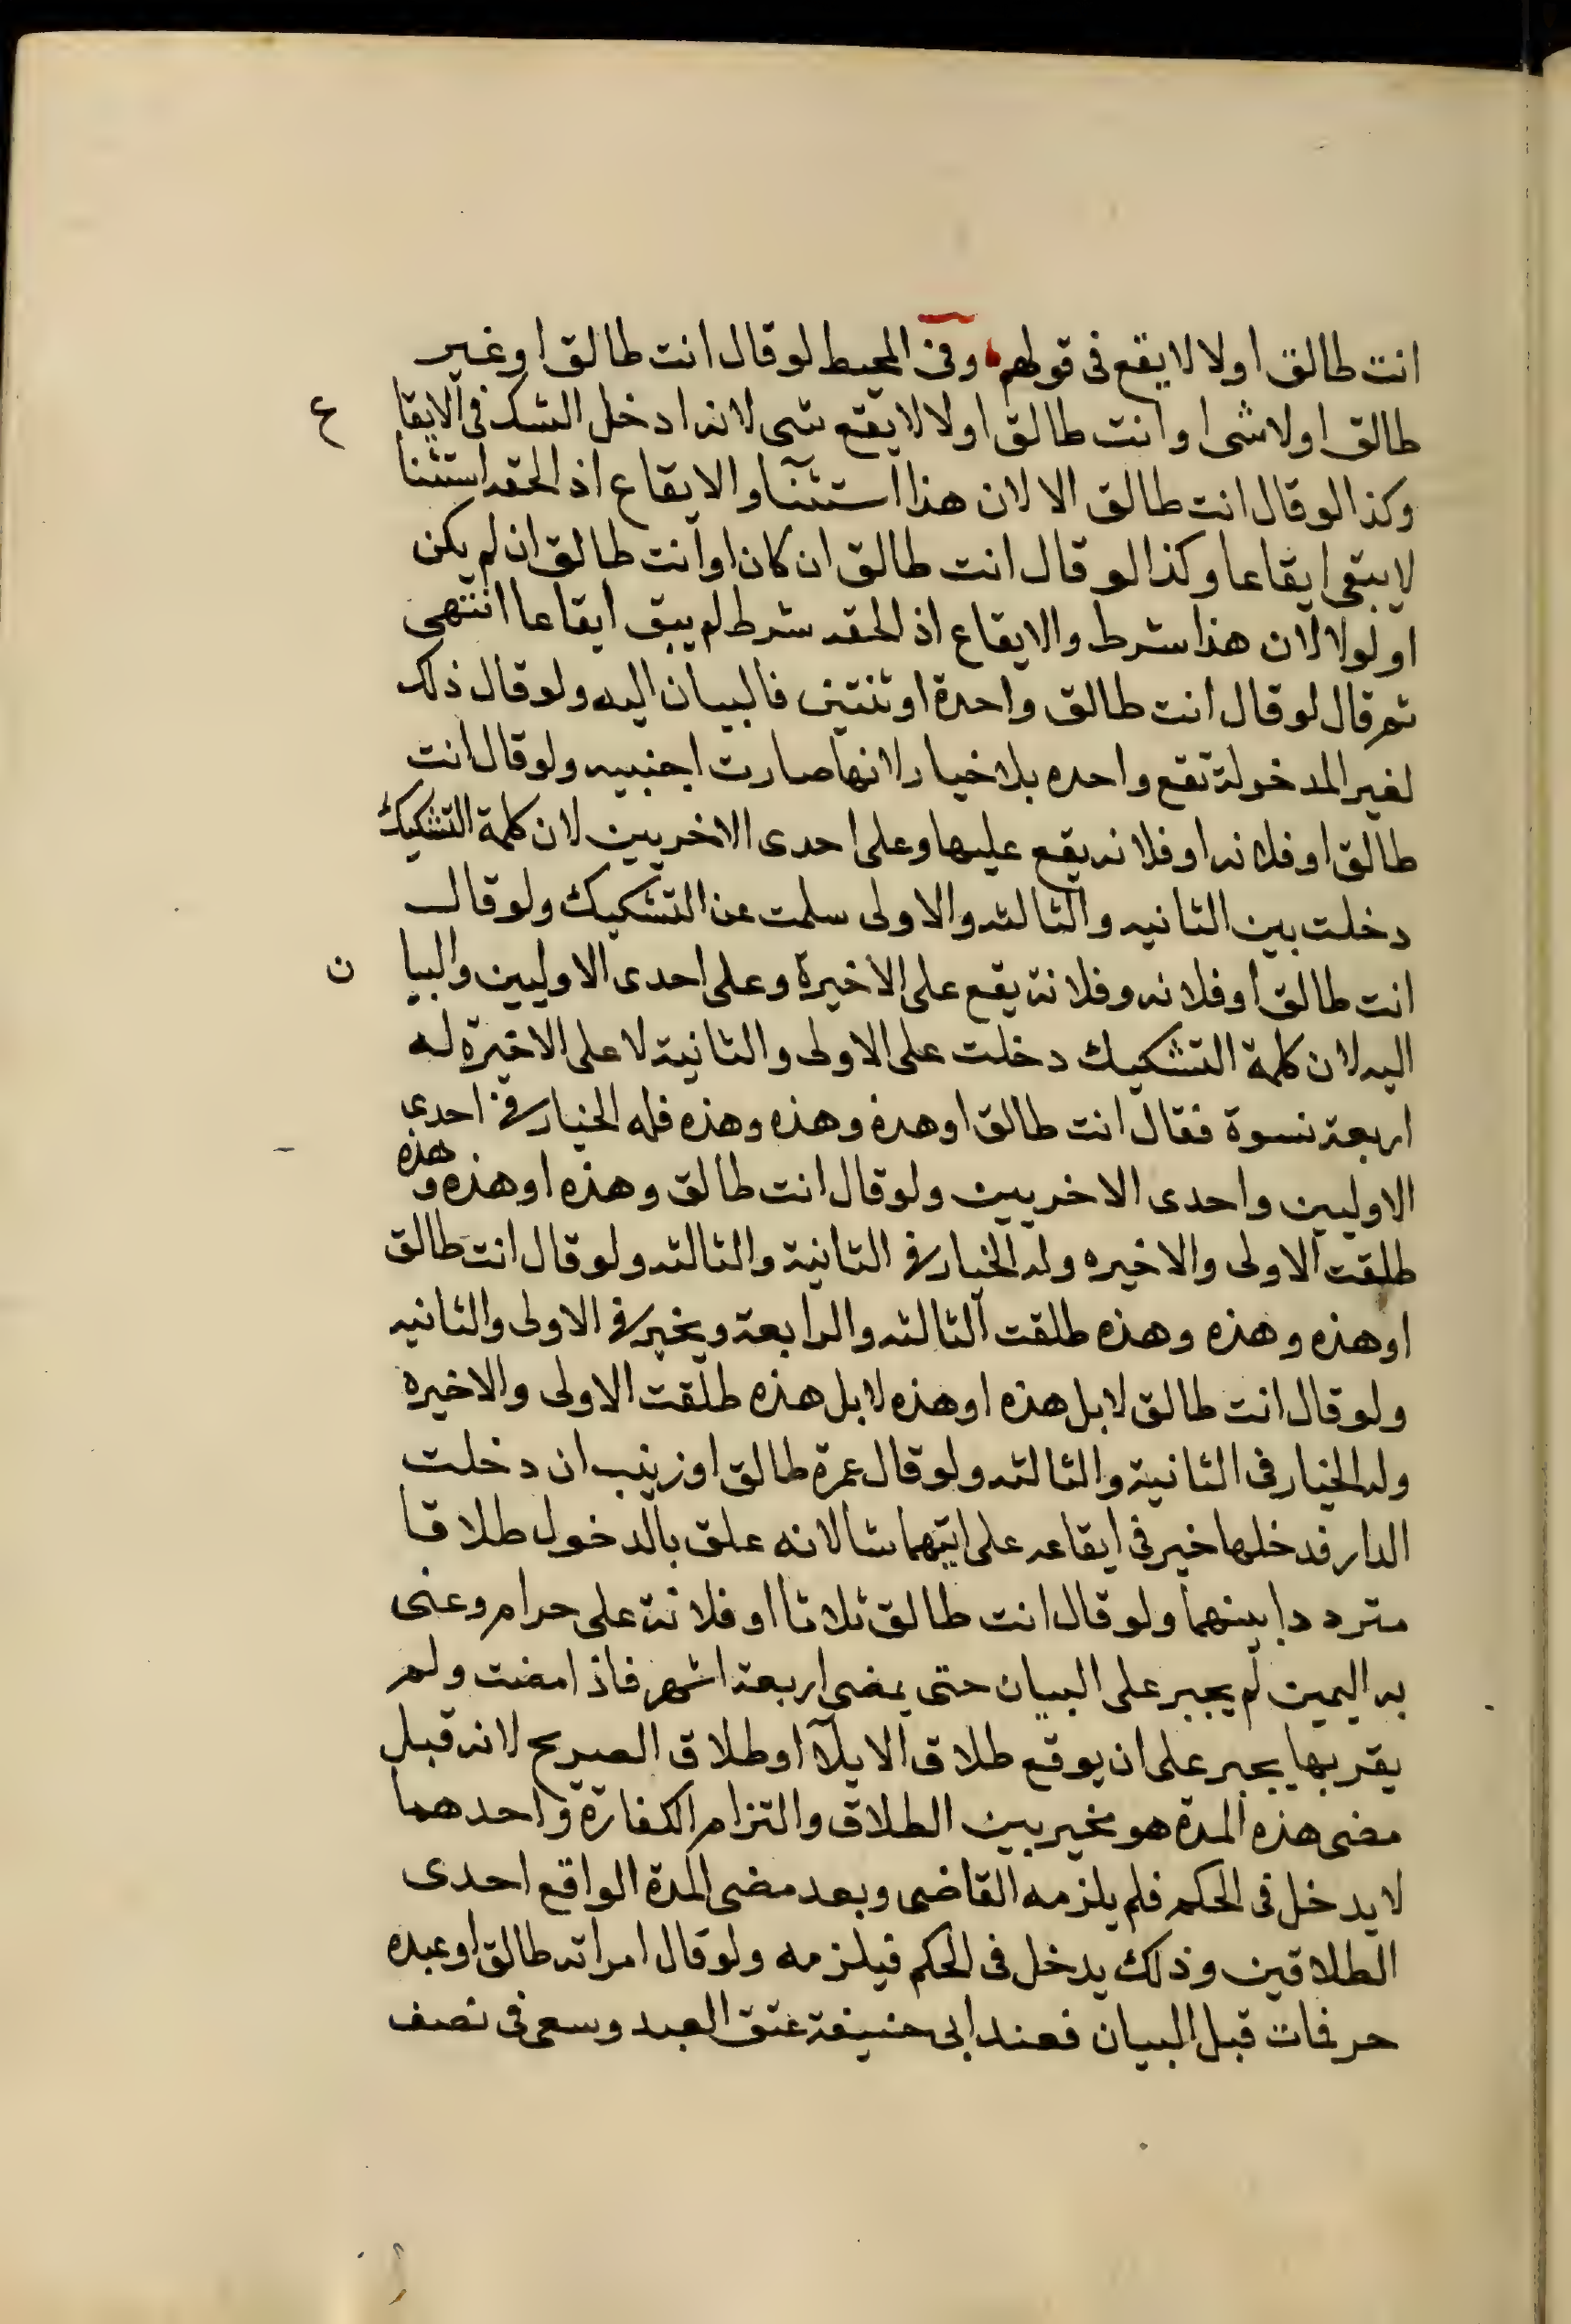 انت طالق اولا لا يقع فى قولهم وفى المحيط لو قال انت طالق او غير
طالق او لا شى او انت طالق اولا لا يقع شى لانه ادخل الشك فى الايقا ع
وكذا لو قال انت طالق الا لان هذا استثنآ والايقاع اذا لحقه استثنا
لا يبقى ايقاعا وكذا لو قال انت طالق ان كان او انت طالق ان لم يكن
او لولا لان هذا شرط والايقاع اذا لحقه شرط لم يبق ايقاعا انتهى
ثم قال لو قال انت طالق واحدة او ثنتين فالبيان اليه ولو قال ذلك
لغير المدخولة تقع واحده بلا خيار لانها صارت اجنبيه ولو قال انت
طالق او فلانه او فلانه يقع عليها وعلى احدى الاخريين لان كلمة التشكيك
دخلت بين الثانيه والثالثه والاولى سلمت عن التشكيك ولو قال
انت طالق او فلانه وفلانة يقع على الاخيرة وعلى احدى الاوليين والبيا ن
اليه لان كلمة التشكيك دخلت على الاولى والثانية لا على الاخيرة له
اربعة نسوة فقال انت طالق او هذه وهذه وهذه فله الخيار فى احدى
الاوليين واحدى الاخريين ولو قال انت طالق وهذه او هذه وهذه
طلقت الاولى والاخيره وله الخيار فى الثانية والثالثه ولو قال انت طالق
او هذه وهذه وهذه طلقت الثالثه والرابعة ويخير فى الاولى والثانيه
ولو قال انت طالق لا بل هذه او هذه لا بل هذه طلقت الاولى والاخيره
وله الخيار فى الثانية والثالثه ولو قال عمرة طالق او زينب ان دخلت
الدار فدخلها خير فى ايقاعه على ايتهما شا لانه علق بالدخول طلاقا
مترددا بينهما ولو قال انت طالق ثلاثا او فلانة على حرام وعنى
به اليمين لم يجبر على البيان حتى يمضى اربعة اشهر فاذا مضت ولم
يقربها يجبر على ان يوقع طلاق الايلآ او طلاق الصريح لانه قبل
مضى هذه المدة هو مخير بين الطلاق والتزام الكفارة واحدهما
لا يدخل فى الحكم فلم يلزمه القاضى وبعد مضى المدة الواقع احدى
الطلاقين وذلك يدخل فى الحكم فيلزمه ولو قال امراته طالق او عبده
حر فمات قبل البيان فعند ابى حنيفة عتق العبد وسعى فى نصف